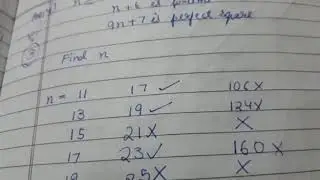 n+6 is
9n+7 is perfect square
Find n
n = 11 17 ✓ 106 X
13 19 ✓ 124 X
15 21 X X
17 23 ✓ 160 X
19 25 X